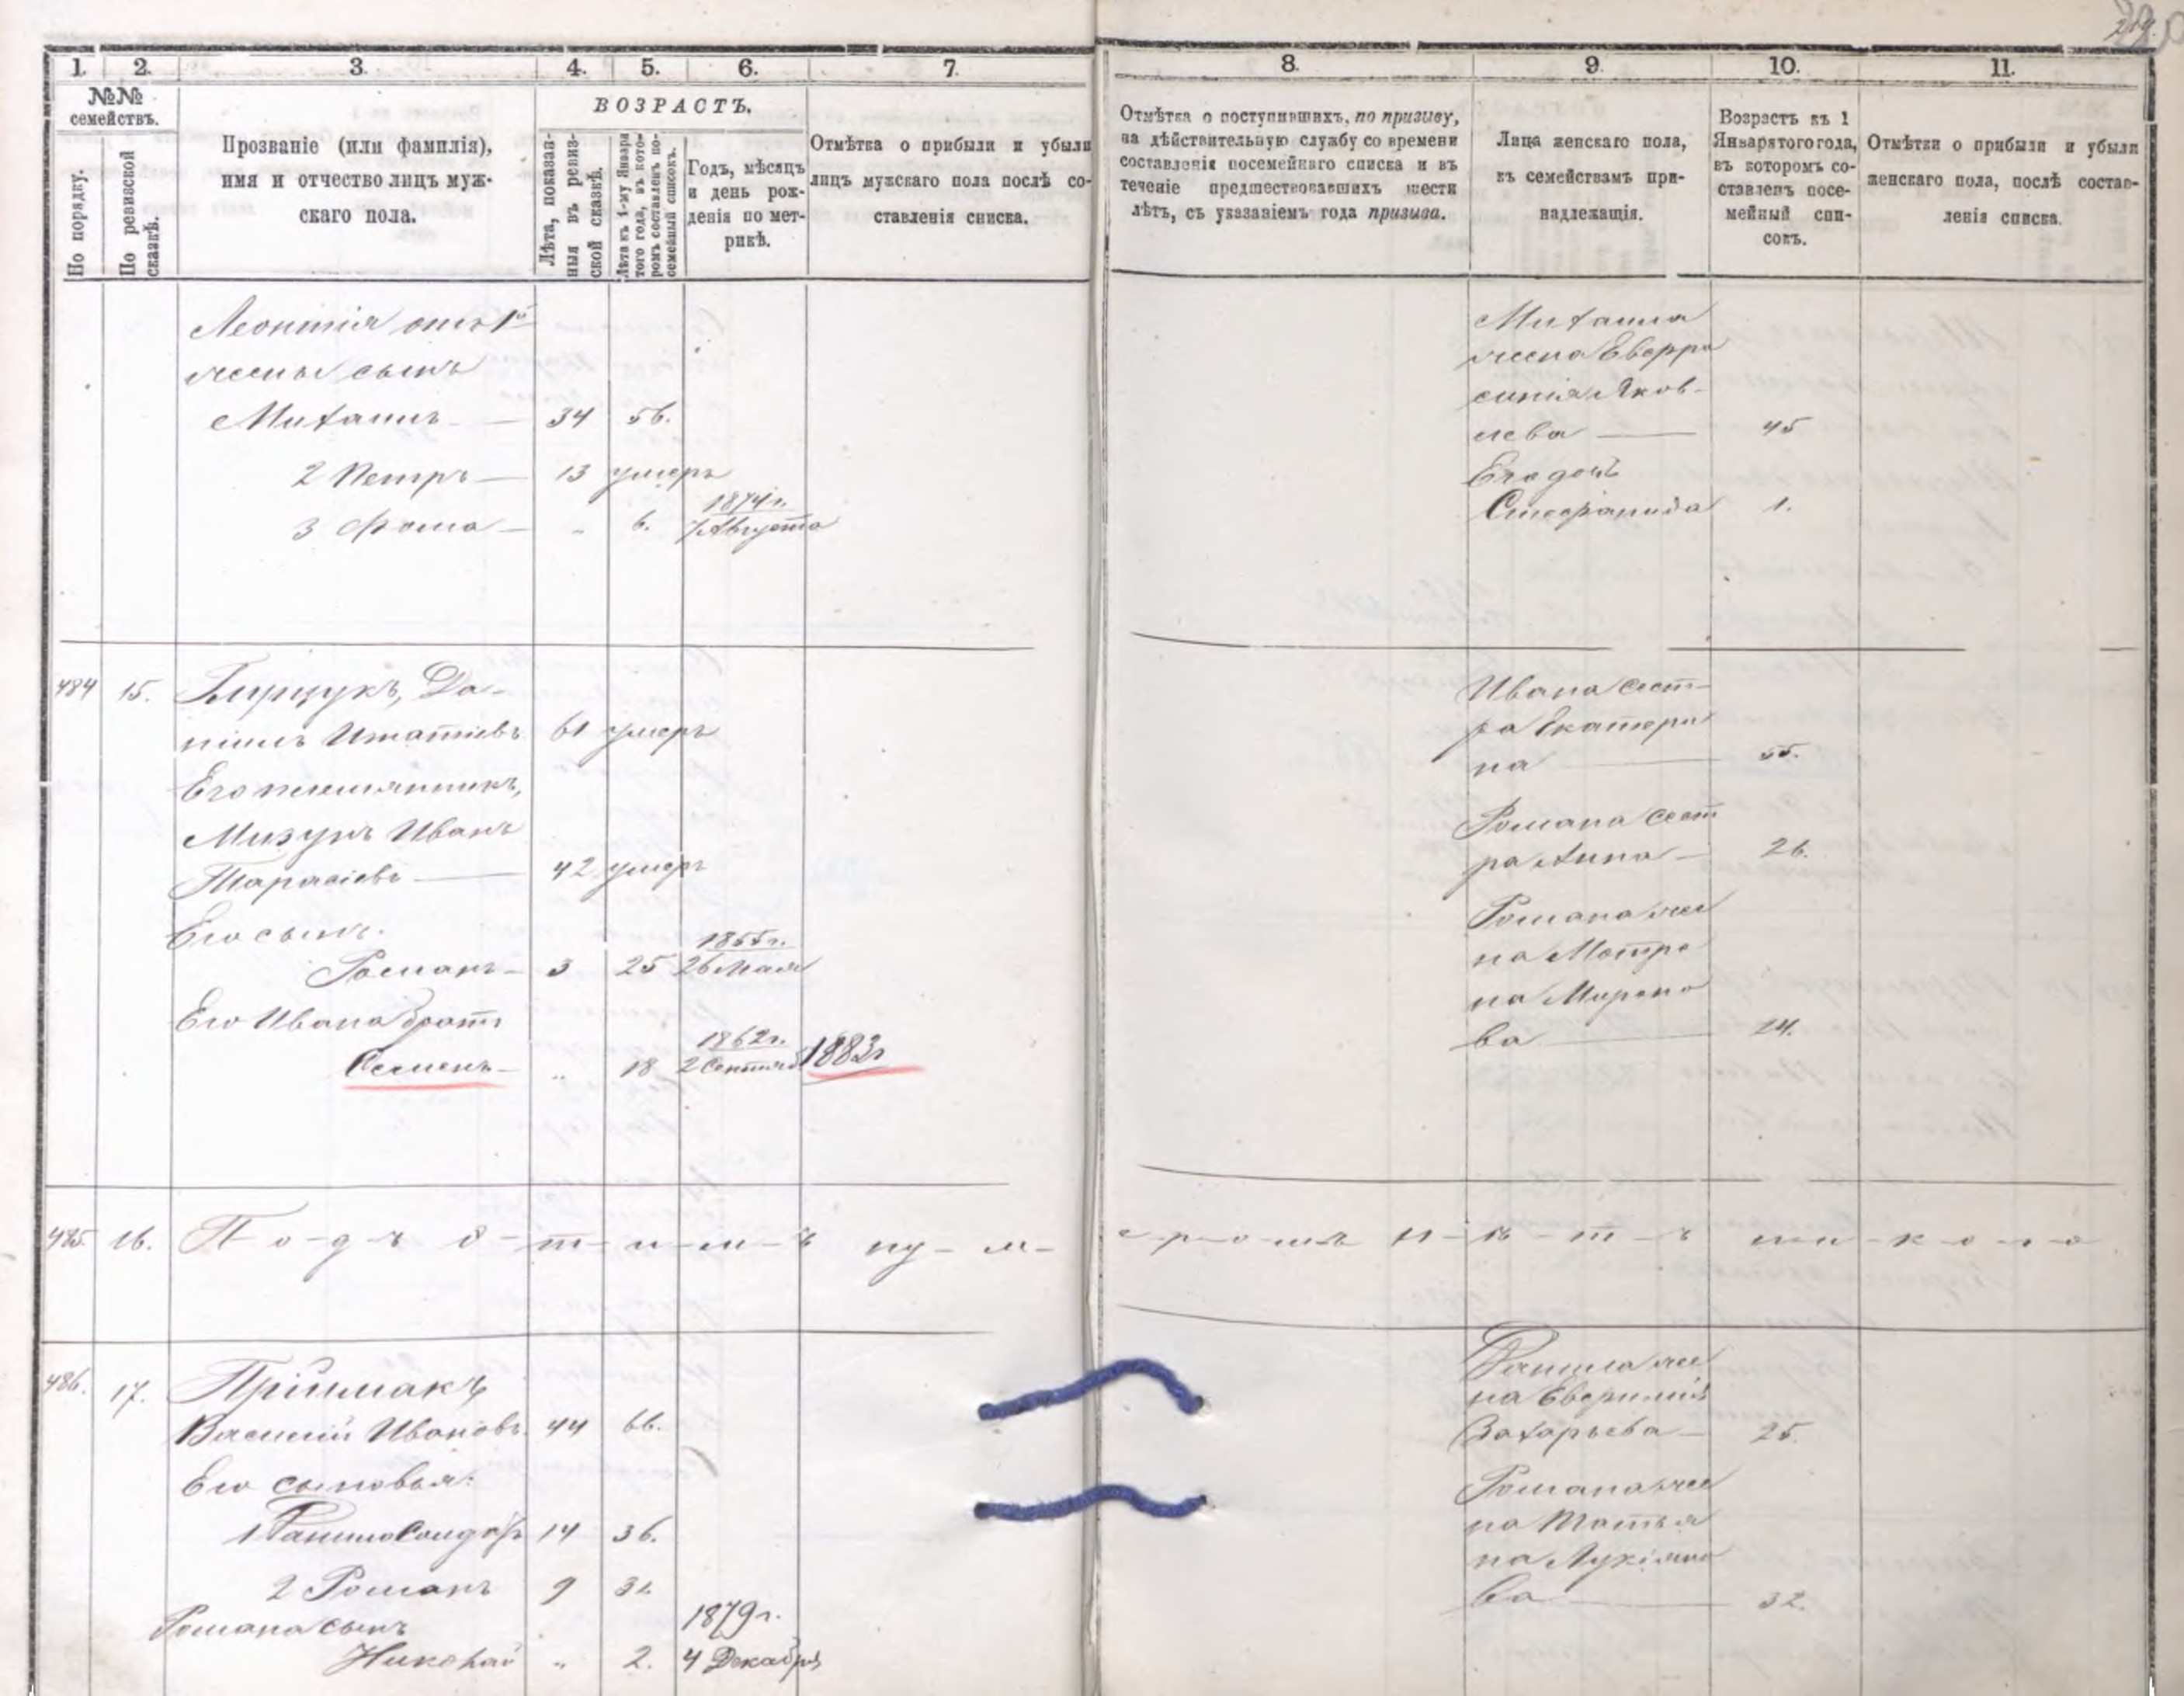 1. 2. 3. 4. 5. 6. 7.
№№ семействъ.
По порядку.
По ревизской сказкѣ.
Прозваніе (или фамилія),
имя и отчество лицъ муж-
скаго пола.
ВОЗРАСТЪ.
Лѣта, показан-
ныя въ ревиз-
ской сказкѣ.
Лѣта къ 1-му Января
того года, въ кото-
ромъ составленъ по-
семейный списокъ.
Годъ, мѣсяцъ
и день рож-
денія по мет-
рикѣ.
Отмѣтка о прибыли и убыли
лицъ мужскаго пола послѣ со-
ставленія списка.
Леонтія отъ 1й
жены сынъ
Михаилъ — 34 56.
2 Петръ — 13 умеръ
1874 г.
3 Фома — „ 6. 7 Августа
484 15. Да-
ніилъ Игнатіевъ 61 умеръ
Его племянникъ,
Мизукъ Иванъ
Тарасіевъ — 42 умеръ
Его сынъ.
1855 г.
Романъ — 3 25 26 Мая
Его Ивана братъ
1862 г.
Семенъ — „ 18 2 Сентяб 1883 г
485. 16. П-о-д-ъ э-т-и-м-ъ ну-м-
486. 17. Пріймакъ
Василій Ивановъ 44 66.
Его сыновья:
1 14 36.
2 Романъ 9 31
Романа сынъ
1879 г.
Николай „ 2. 4 Декабря
8. 9. 10. 11.
Отмѣтка о поступившихъ, по призыву,
на дѣйствительную службу со времени
составленія посемейнаго списка и въ
теченіе предшествовавшихъ шести
лѣтъ, съ указаніемъ года призыва.
Лица женскаго пола,
къ семействамъ при-
надлежащія.
Возрастъ къ 1
Января того года,
въ которомъ со-
ставленъ посе-
мейный спи-
сокъ.
Отмѣтки о прибыли и убыли
женскаго пола, послѣ состав-
ленія списка.
Михаила
жена Евфро
синія Яков-
лева — 45
Его дочь
Стефанида 1.
Ивана сест-
ра Екатери
на — 55.
Романа сест
ра Анна — 26.
Романа же
на Мотре
на Мироно
ва — 24.
е-р-о-м-ъ н-ѣ-т-ъ ни-к-о-г-о
Данила же
на Евфимія
Захарьева — 25.
Романа же
на Татья
на Лукіяно
ва — 32.